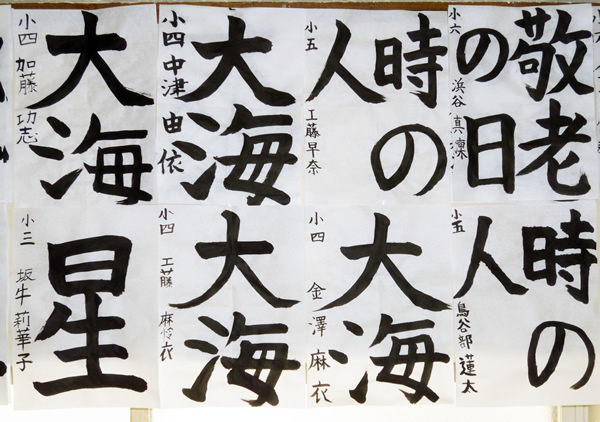 大海
小四 加藤 功志
大海
小四 中津 由依
時の
人
小五 工藤早奈
敬老
の日
小六 浜谷 真凜
星
小三 坂牛 莉華子
大海
小四 工藤 麻怜衣
大海
小四 金澤麻衣
時の
人
小五 鳥谷部 蓮太